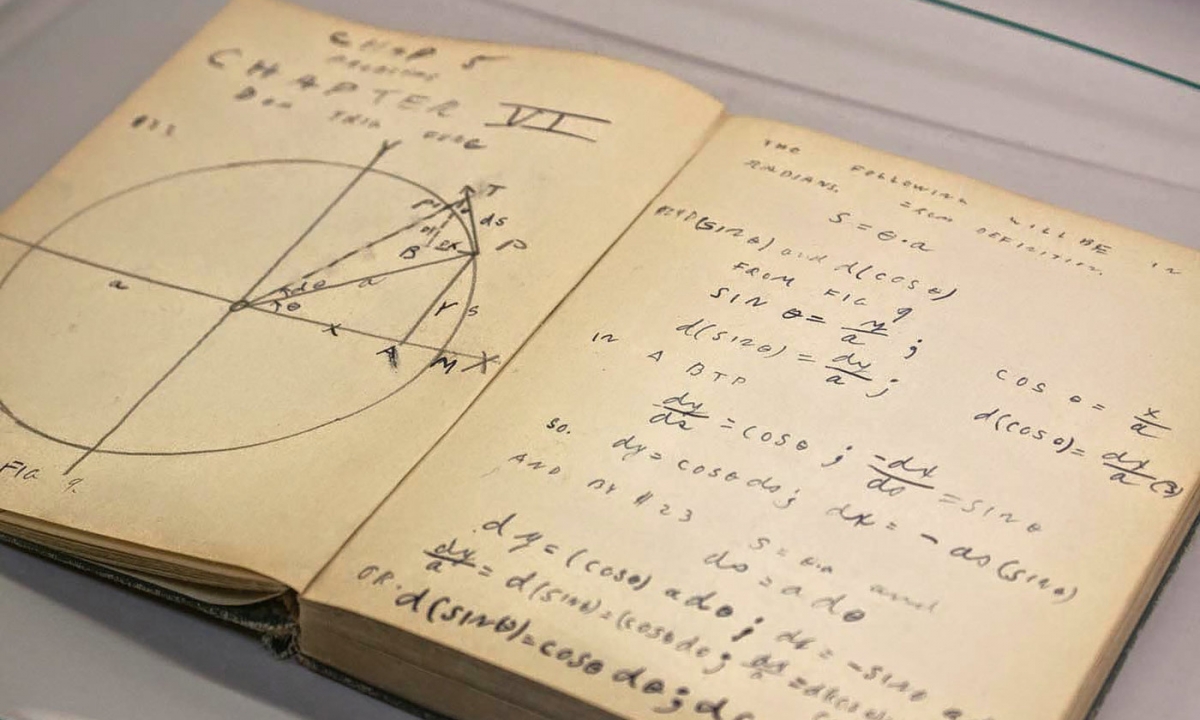 CHAP 5
CHAPTER VI
Y
T
ds
P
B
dθ
a
θ
a
Y
S
x
A
M
X
FIG 9.
THE FOLLOWING WILL BE IN
RADIANS. FROM DEFINITION,
S = θ·a
d(SINθ) and d(COSθ)
FROM FIG 9
SIN θ = y/a ; COS θ = x/a
d(SINθ) = dy/a ; d(COSθ) = dx/a (3)
IN A BTP
dy/ds = COSθ ; -dx/ds = SINθ
SO. dy = COSθ ds ; dx = -ds(SINθ)
AND BY #23 S = θ·a and
ds = a dθ
dy = (COSθ) a dθ ; dx = -SINθ
dy/a = d(SINθ) = (COSθ dθ ; dx/a
OR. d(SINθ) = COSθ dθ ; d